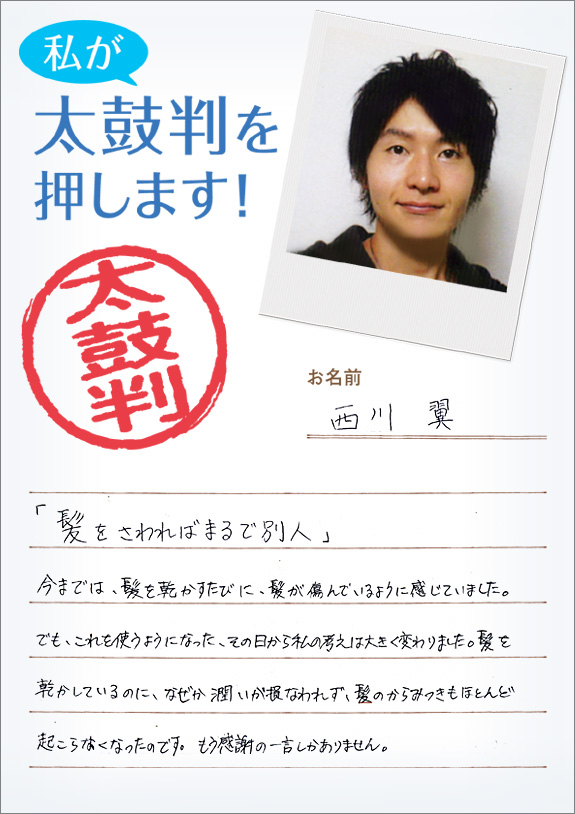 私が
太鼓判を
押します!
太鼓判
お名前
西川 翼
「髪をさわればまるで別人」
今までは、髪を乾かすたびに、髪が傷んでいるように感じていました。
でも、これを使うようになった、その日から私の考えは大きく変わりました。髪を
乾かしているのに、なぜか潤いが損なわれず、髪のからみつきもほとんど
起こらなくなったのです。もう感謝の一言しかありません。